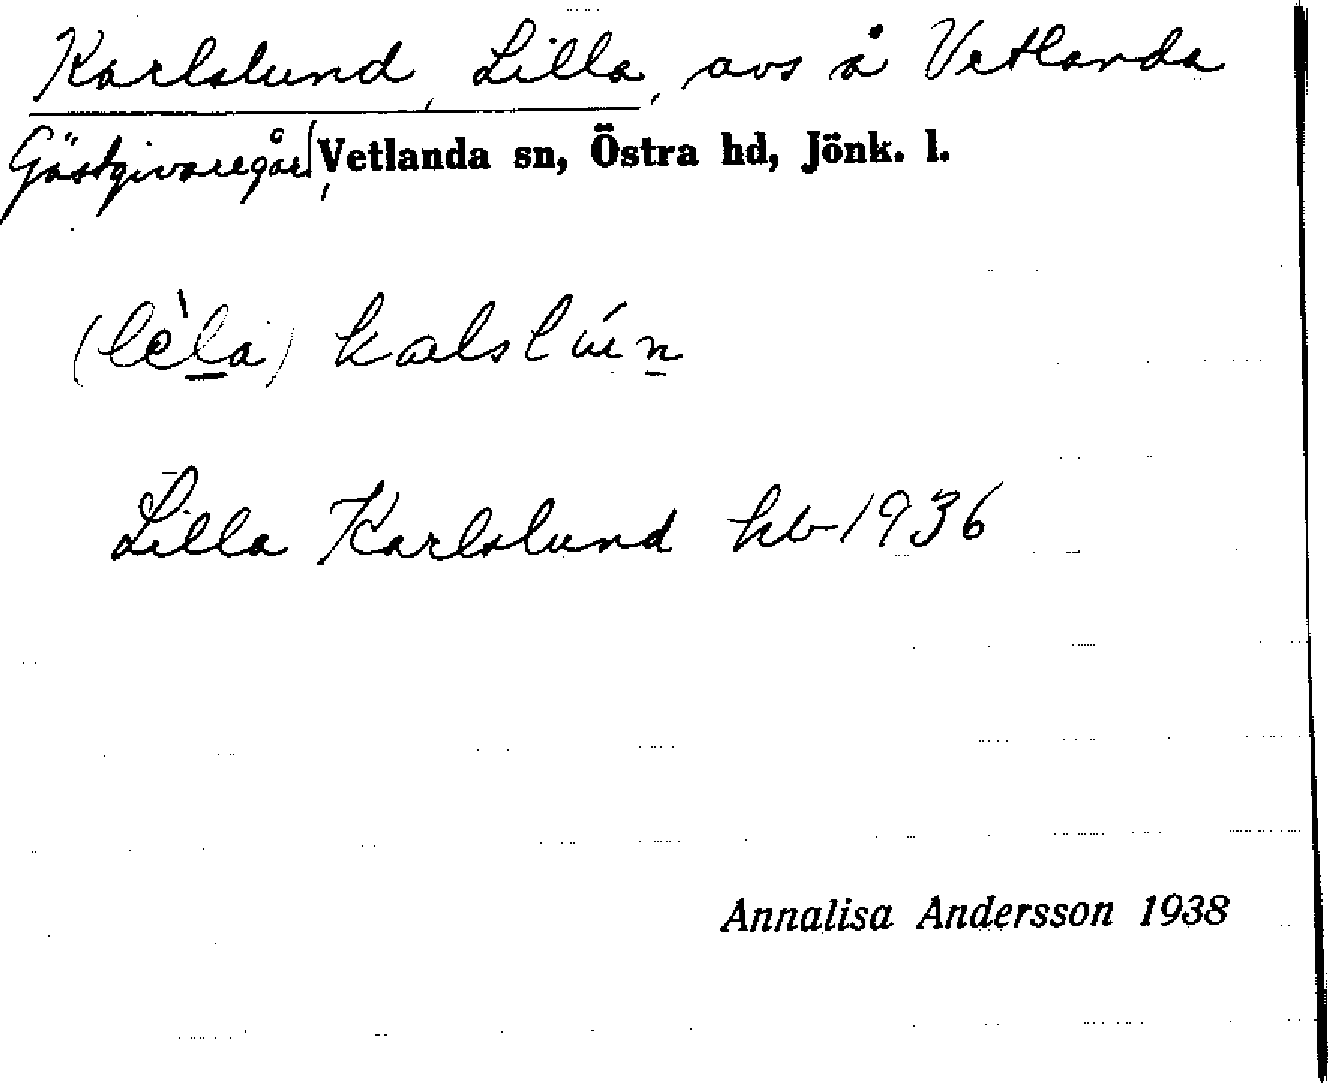 Karlslund, Lilla, avs å Vetlanda
Gästgivaregård, Vetlanda sn, Östra hd, Jönk. l.
(lèla) kalslún
Lilla Karlslund kb 1936
Annalisa Andersson 1938